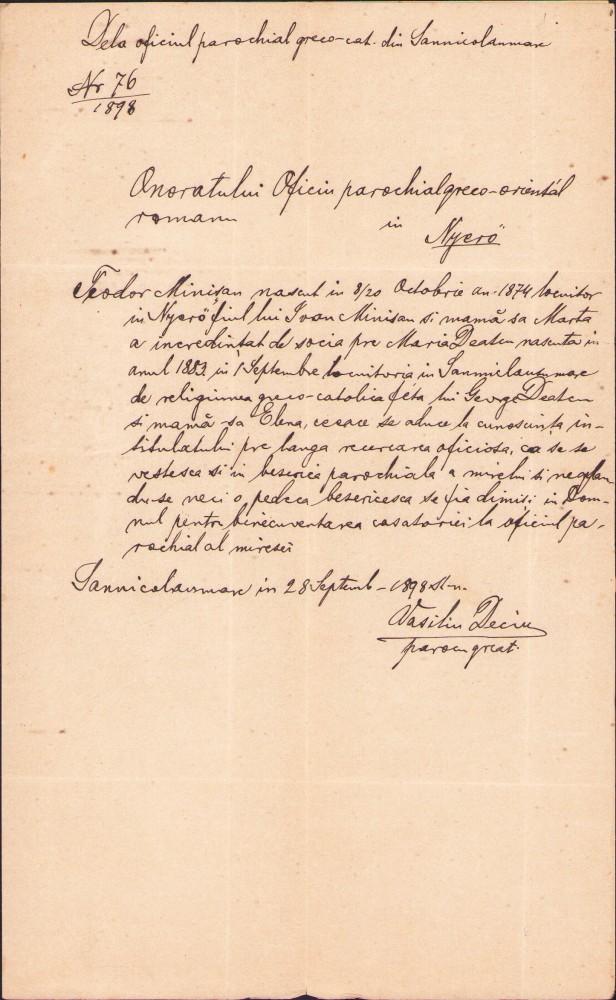 Dela oficiul parochial greco-cat. din Sannicolaumare
Nr 76
1898
Onoratului Oficiu parochial greco-oriental
romanu
in
Nyerő
Teodor Minișan nascut in 8/20 Octobrie an. 1874 locuitor
in Nyerő fiul lui Ioan Minisan si mamă sa Marta
a incredintat de socia pre Maria Deatcu nascuta in
anul 1883 in 1 Septembre locuitoria in Sannicolaumare
de religiunea greco-catolica féta lui George Deatcu
si mamă-sa Elena, ceeace se aduce la cunoscinta in-
titulatului pre langa recercarea oficiosa, ca se se
vestesca si in beserica parochiala a mirelui si negasan
du-se neci o pedeca besericesca se fia dimisi in Dom-
nul pentru binecuventarea casatoriei la oficiul pa-
rochial al miresei
Sannicolaumare in 28 Septemb - 1898 st. n.
Vasiliu Deciu
parocu gr cat.